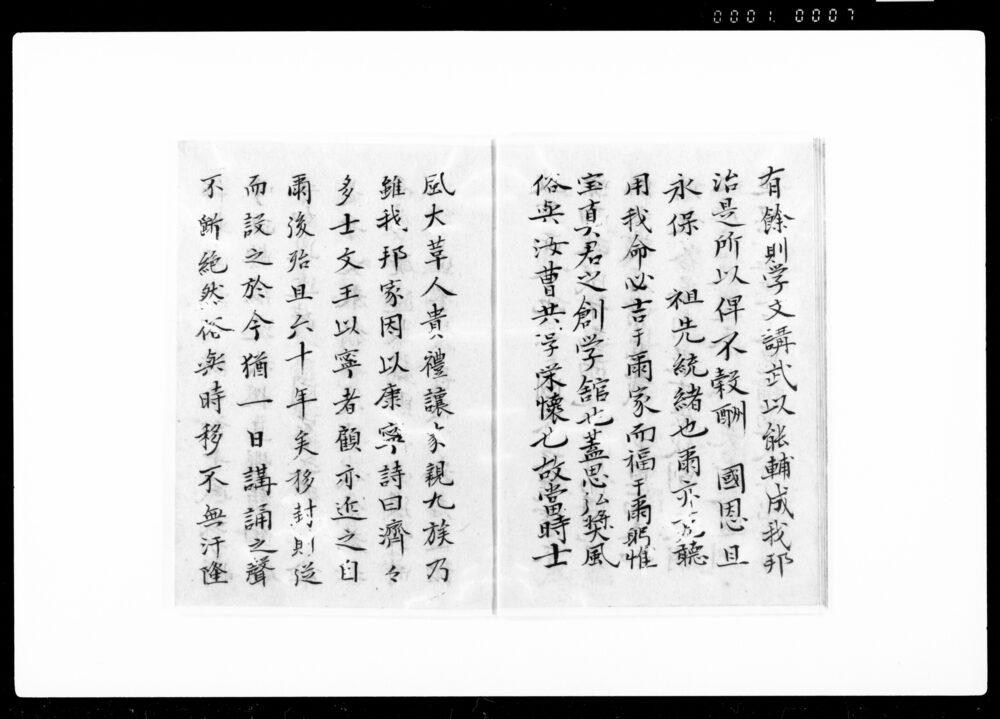 0001 0007
有餘則学文講武以能輔成我邦
治是所以俾不穀酬 國恩且
永保 祖先統緒也爾亦 聽
用我命必吉于爾家而福于爾躬惟
宝真君之創学舘也蓋思弘奬風
俗與汝曹共浮栄懐也故當時士
風大草人貴禮讓家親九族乃
雖我邦家因以康寧詩曰濟々
多士文王以寧者顧亦近之自
爾後殆且六十年矣移封則従
而設之於今猶一日講誦之聲
不斷絶然俗與時移不無汗隆